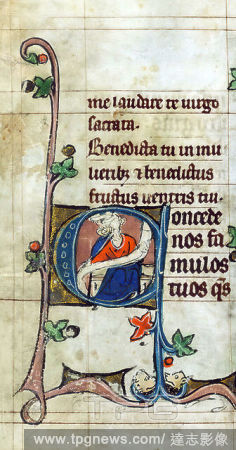 me laudare te uirgo
sacrata.
Benedicta tu in mu
lieribꝫ ⁊ benedictus
fructus uentris tui.
Concede
nos fa
mulos
tuos qs
www.tpgnews.com / 達志影像